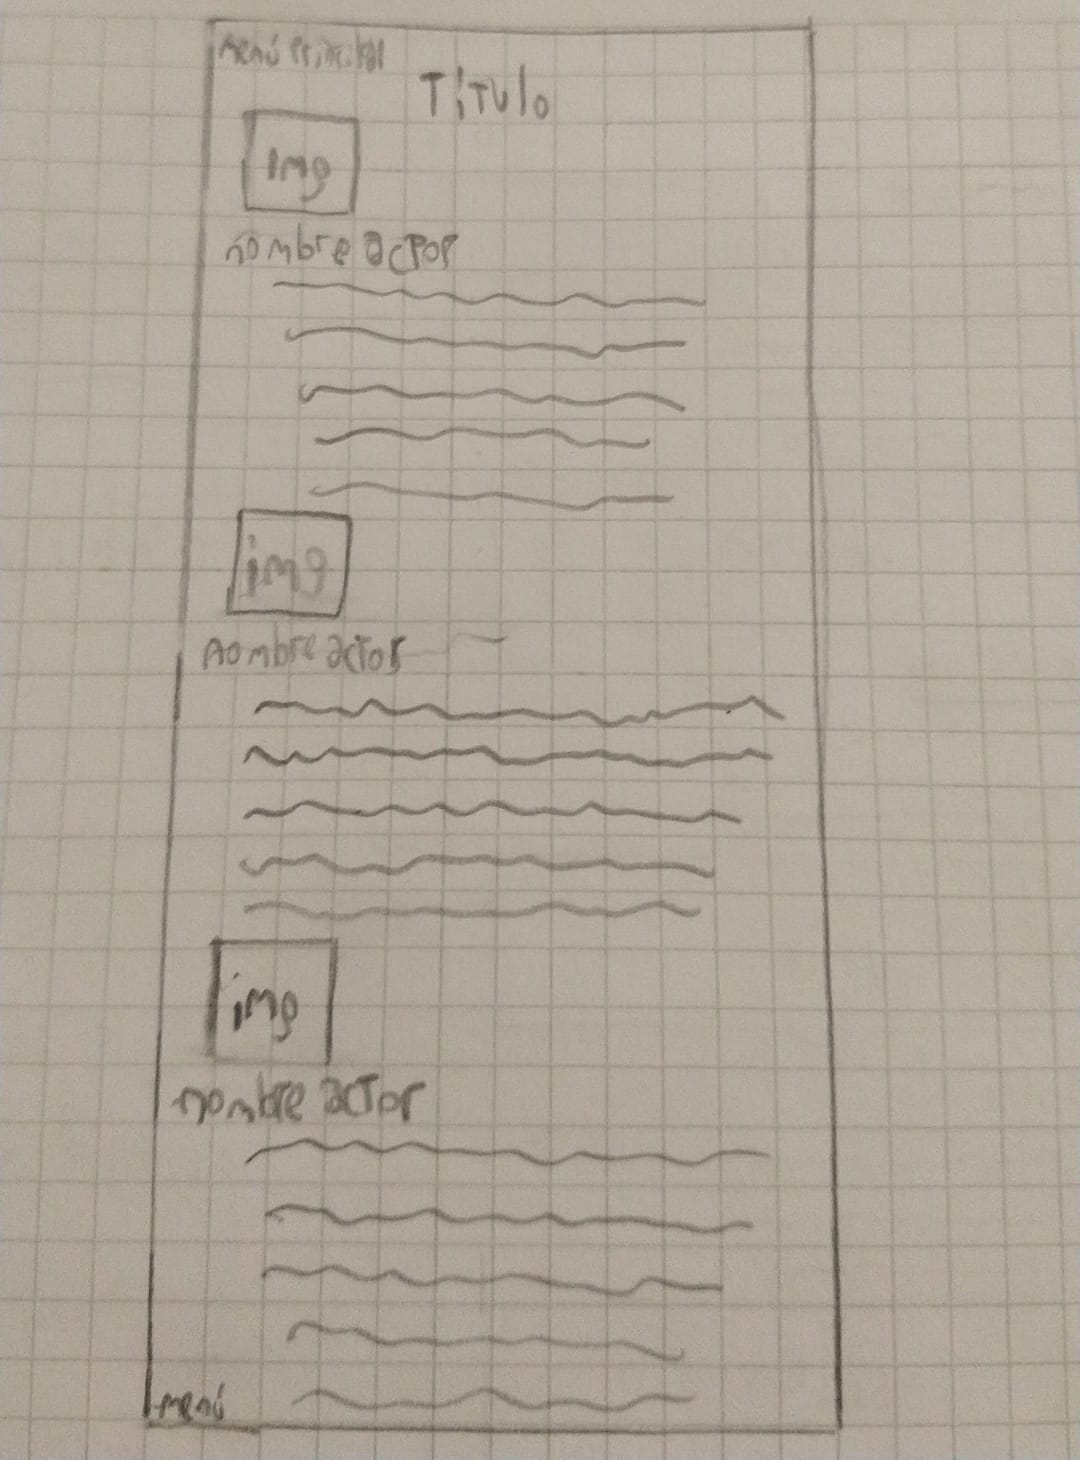 Menú Principal
Título
img
nombre actor
img
nombre actor
img
nombre actor
menú